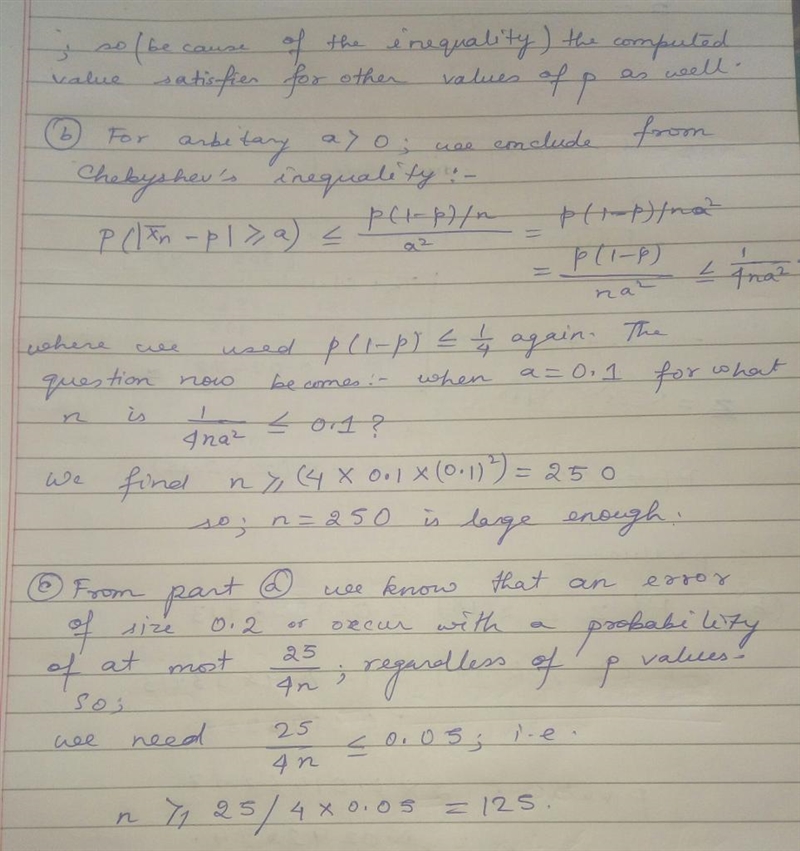 ; so (because of the inequality) the computed
value satisfies for other values of p as well.
(b) For arbitary a > 0; we conclude from
Chebyshev's inequality :-
P(|x̄n - p| ⩾ a) ≤ p(1-p)/n / a² = p(1-p)/na²
= p(1-p) / na² ≤ 1/4na².
where we used p(1-p) ≤ 1/4 again. The
question now becomes:- when a = 0.1 for what
n is 1/4na² ≤ 0.1?
We find n ⩾ (4 × 0.1 × (0.1)²) = 250
so; n = 250 is large enough.
(c) From part (a) we know that an error
of size 0.2 or occur with a probability
of at most 25/4n; regardless of p values.
So;
we need 25/4n ≤ 0.05; i.e.
n ⩾ 25/4 × 0.05 = 125.